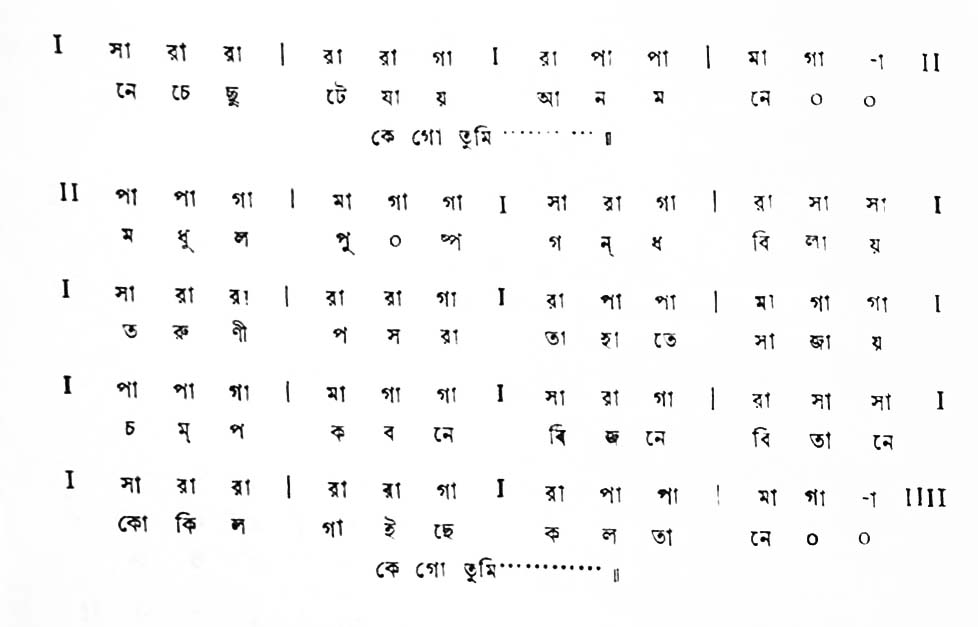 I সা রা রা | রা রা গা I রা পা পা | মা গা -া II
নে চে ছু টে যা য় আ ন ম নে ০ ০
কে গো তুমি ············ ॥
II পা পা গা | মা গা গা I সা রা গা | রা সা সা I
ম ধু ল পু ০ ষ্প গ ন্ ধ বি লা য়
I সা রা রা | রা রা গা I রা পা পা | মা গা গা I
ত রু ণী প স রা তা হা তে সা জা য়
I পা পা গা | মা গা গা I সা রা গা | রা সা সা I
চ ম্ প ক ব নে বি জ নে বি তা নে
I সা রা রা | রা রা গা I রা পা পা | মা গা -া IIII
কো কি ল গা ই ছে ক ল তা নে ০ ০
কে গো তুমি············· ॥